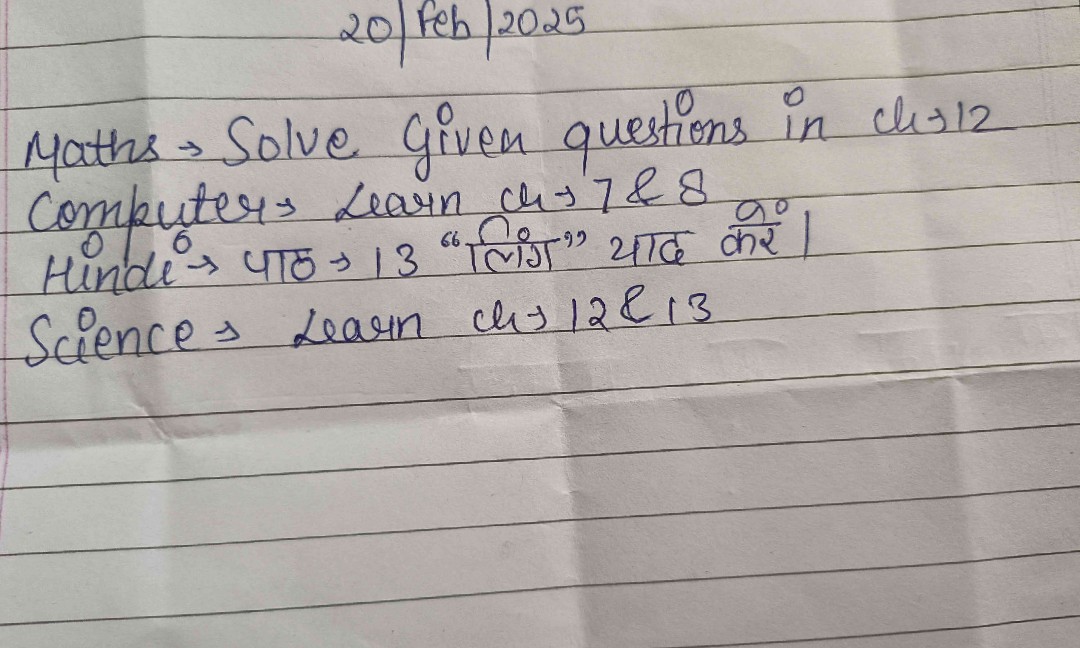 20/Feb/2025
Maths → Solve Given questions in ch → 12
Computer → Learn ch → 7 & 8
Hindi → पाठ → 13 “लिंग” याद करें।
Science → Learn ch → 12 & 13